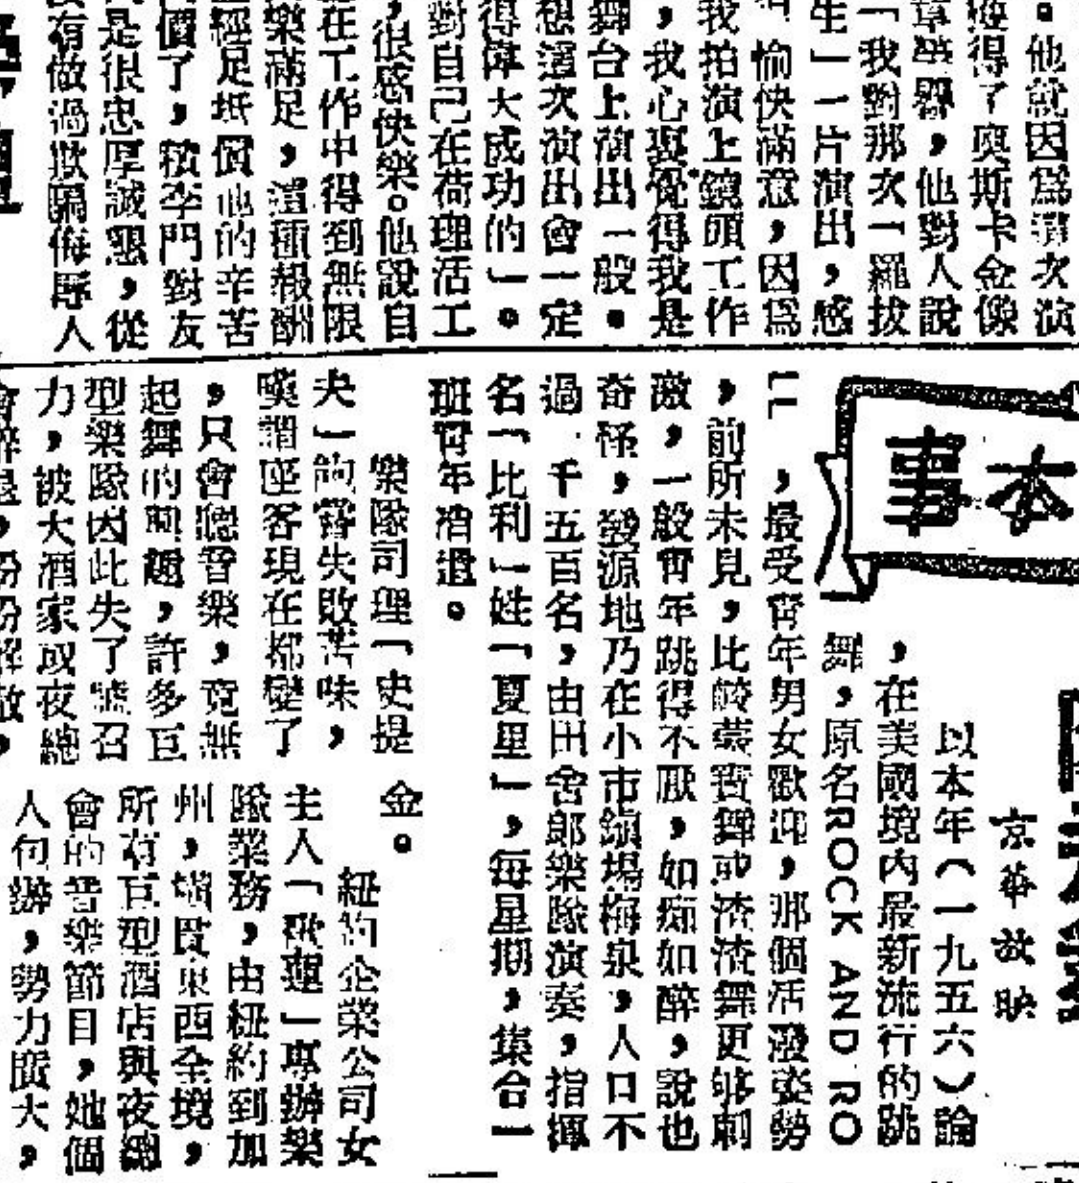 。他就因為這次演
獲得了奧斯卡金像
章榮譽,他對人說
「我對那次「羅拔
生」一片演出,感
愉快滿意,因為
我拍演上鏡頭工作
,我心裏覺得我是
舞台上演出一般。
想這次演出會一定
得偉大成功的」。
對自己在荷理活工
,很感快樂。他說自
在工作中得到無限
樂滿足,這種報酬
經足抵償他的辛苦
價了,積李門對友
是很忠厚誠懇,從
有做過欺騙侮辱人
本事
京華放映
以本年(一九五六)論
,在美國境內最新流行的跳
舞,原名ROCK AND RO
LL,最受青年男女歡迎,那個活潑姿勢
,前所未見,比較舞或渣渣舞更够刺
激,一般青年跳得不厭,如痴如醉,說也
奇怪,發源地乃在小市鎮場梅泉,人口不
過千五百名,由田舍郎樂隊演奏,指揮
名「比利」姓「夏里」,每星期,集合一
班青年消遣。
樂隊司理「史提
夫」飽嘗失敗苦味,
嘆謂座客現在都變了
,只會聽音樂,竟無
起舞的興趣,許多巨
型樂隊因此失了號召
力,被大酒家或夜總
會辭退,紛紛解散,
金。
紐約企業公司女
主人「歌蓮」專辦樂
隊業務,由紐約到加
州,橫貫東西全境,
所有巨型酒店與夜總
會的音樂節目,她個
人包辦,勢力廣大,